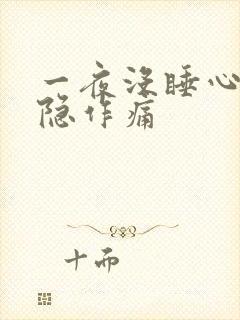 一夜没睡心
隐作痛
十而